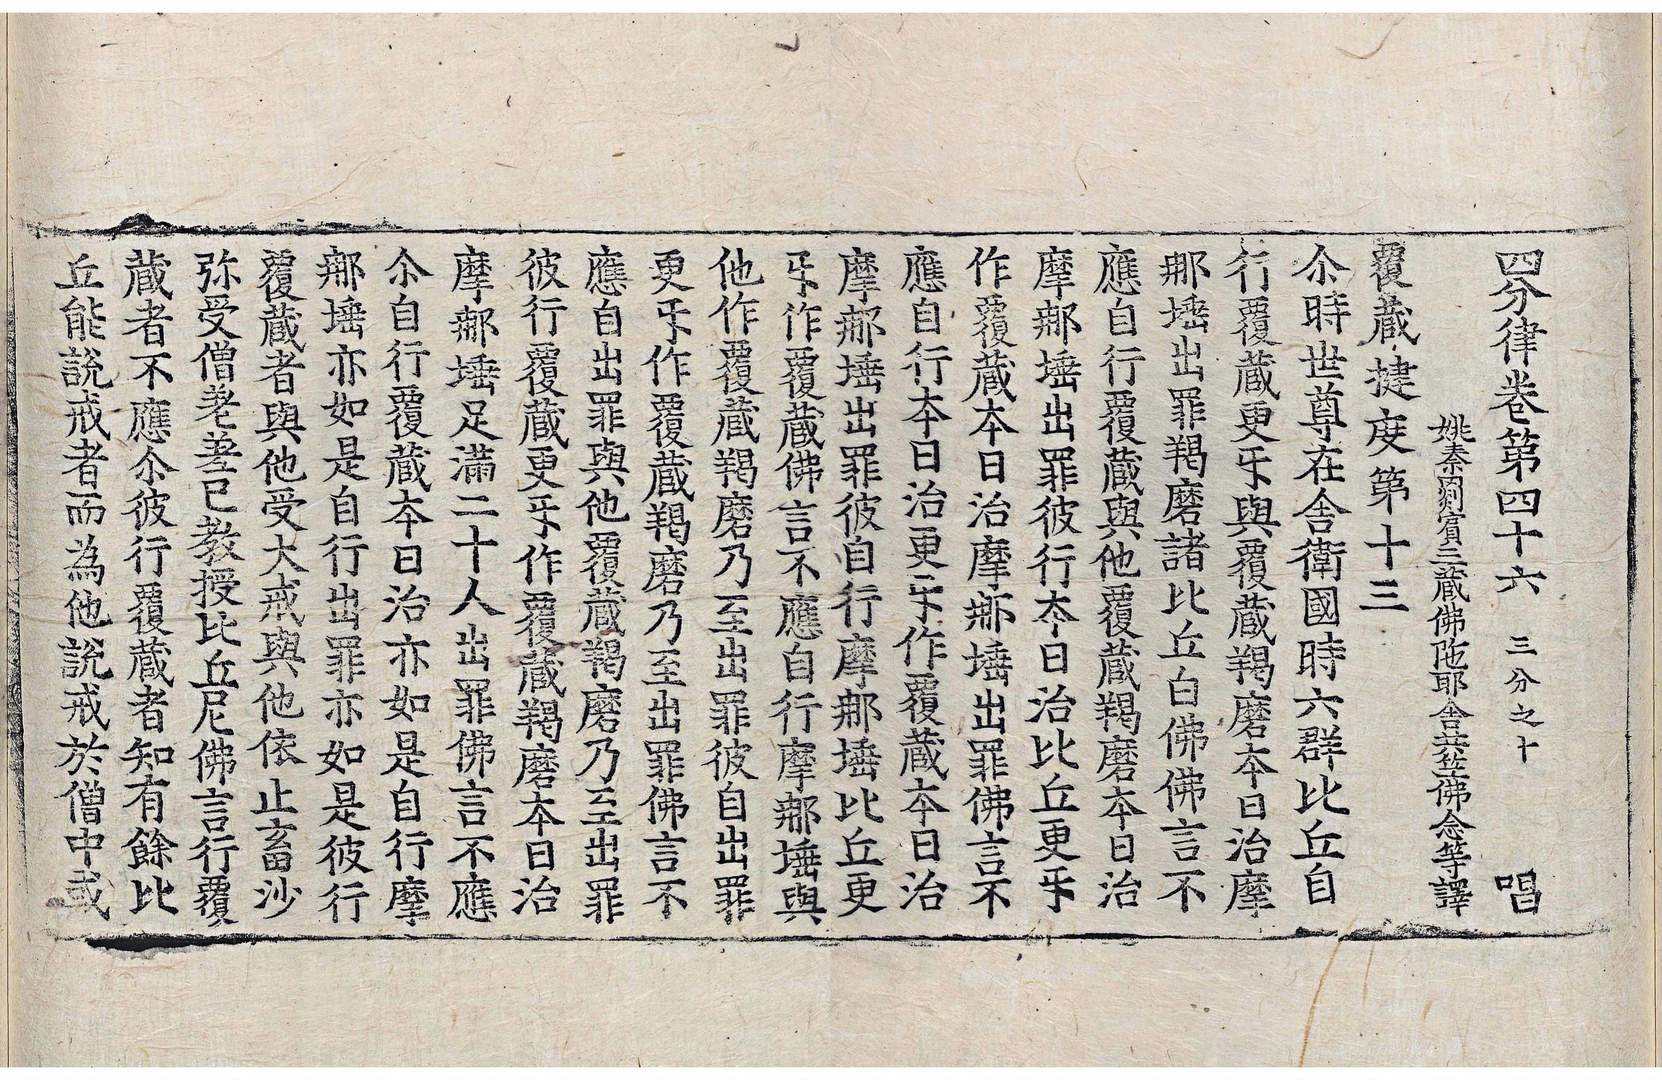 四分律卷第四十六 三分之十 唱
姚秦罽賓三藏佛陁耶舍共竺佛念等譯
覆藏揵度第十三
尒時世尊在舍衛國時六群比丘自
行覆藏更㸦與覆藏羯磨夲日治摩
那埵出罪羯磨諸比丘白佛佛言不
應自行覆藏與他覆藏羯磨夲日治
摩那埵出罪彼行夲日治比丘更㸦
作覆藏夲日治摩那埵出罪佛言不
應自行夲日治更㸦作覆藏夲日治
摩那埵出罪彼自行摩那埵比丘更
㸦作覆藏佛言不應自行摩那埵與
他作覆藏羯磨乃至出罪彼自出罪
更㸦作覆藏羯磨乃至出罪佛言不
應自出罪與他覆藏羯磨乃至出罪
彼行覆藏更㸦作覆藏羯磨夲日治
摩那埵足滿二十人出罪佛言不應
尒自行覆藏夲日治亦如是自行摩
那埵亦如是自行出罪亦如是彼行
覆藏者與他受大戒與他依止畜沙
弥受僧差差已教授比丘尼佛言行覆
藏者不應尒彼行覆藏者知有餘比
丘能說戒者而為他說戒於僧中或